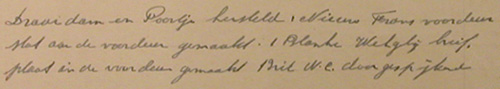 Draai dam en Poortje hersteld 1 Nieuw Frans voordeur
slot aan de voordeur gemaakt. 1 Blanke
plaat in de voordeur gemaakt Bril W.C. door gespijkerd